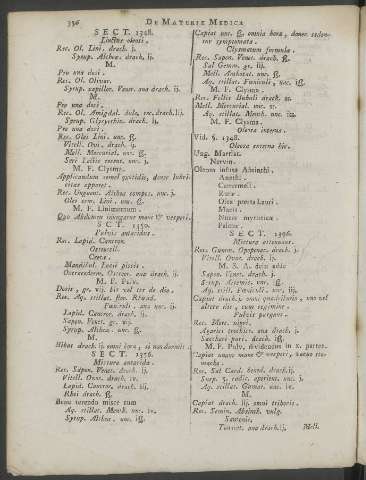 356 DE MATERIE MEDICA
SECT. 1328.
Linctus olenti.
Rec. Ol. Lini. drach. j.
Syrup. Althææ. drach. ij.
M.
Pro una dosi.
Rec. Ol. Olivar.
Syrup. capillor. Vener. ana drach. ij
M.
Pro una dosi.
Rec. Ol. Amygdal. dulc. rec. drach. iij
Syrup. Glycyrrhiz. drach. iij.
M.
Pro una dosi.
Rec. Olei Lini. unc. ß.
Vitell. Ovi drach. ij
Mell. Mercurial. unc. ß.
Seri Lactis recent. unc.
M. F. Clysma.
Applicandum semel quotidie, donec lubricitas
appareat.
Rec. Unguent. Althææ compos. unc. j.
Olei sem. Lini. unc. ß.
M. F. Linimentum.
Quo Abdomen inungatur mane & vesperi.
SCT. 1350.
Pulvis antacidus.
Rec. Lapid. Cancror.
Ostracoll.
Cretæ.
Mandibul. Lucii piscis.
Ostreoderm. Ostreor. ana drach. ij.
M. F. Pulv.
Dosis, gr. vij. bis vel ter de die.
Rec. Aq. stillat. flor. Rhoead.
Foeniculi, ana unc. iij
Lapid. Cancror. drach. ij.
Sapon. Venet. gr. vij.
Syrup. Althææ. unc. ß.
M.
Bibat drach. ij omni hora, si non dormit.
SECT. 1356.
Mixtura antacida.
Rec. Sapon. Venet. drach. ij.
Vitell. Ovor. drach. iv.
Lapid. Cancror. drach. iij.
Rhei drach. ß.
Bene terendo misce cum
Aq. stillat. Menth. unc. iv.
Syrup. Althææ. unc. iß.
Capiat unc. ß. omni hora, donec sedentur
symptomata.
Clysmatum formulæ.
Rec. Sapon. Venet. drach. ß.
Sal Gemm. gr. iij.
Mell. Anthosat. unc. ß.
Aq. stillat. Foeniculi, unc. iß.
M. F. Clysma.
Rec. Fellis Bubuli drach.
Mell. Mercurial. unc.
Aq. stillat. Menth. unc.
M. F. Clysma.
Olivera interna.
Vid. §. 1348.
Oleosa externa hic.
Ung. Martiat.
Nervin.
Oleum infusa Absinthi.
Anethi.
Camomill.
Rutæ.
Olea pressa Lauri.
Macis.
Nucis myristicæ.
Palmæ.
SECT. 1396.
Mixtura attenuans.
Rec. Gumm. Opopanac. drach. j.
Vitell. Ovor. drach. ij.
M. S. A. dein adde
Sapon. Venet. drach. j.
Syrup. Artemis. unc. ß.
Aq. still. Foenicul. unc. iij.
Capiat drach. j. omni quadrihorio, uno vel
altero die, cum regimine.
Pulvis purgans.
Rec. Merc. nigri.
Agarici trochisc. ana drach. j.
Sacchari puri. drach. iß.
M. F. Pulv. dividendus in x. partes.
Capiat unam mane & vesperi, hausto
Rec. Sal Card. bened. drach. ij.
Syrup. 5. radic. aperient. unc. j.
Aq. stillat. Gramin. unc. iv.
M.
Capiat drach. iij. omni trihorio.
Rec. Semin. Absinth. vulg.
Santonic.
Tanacet. ana drach. ij. Mell.